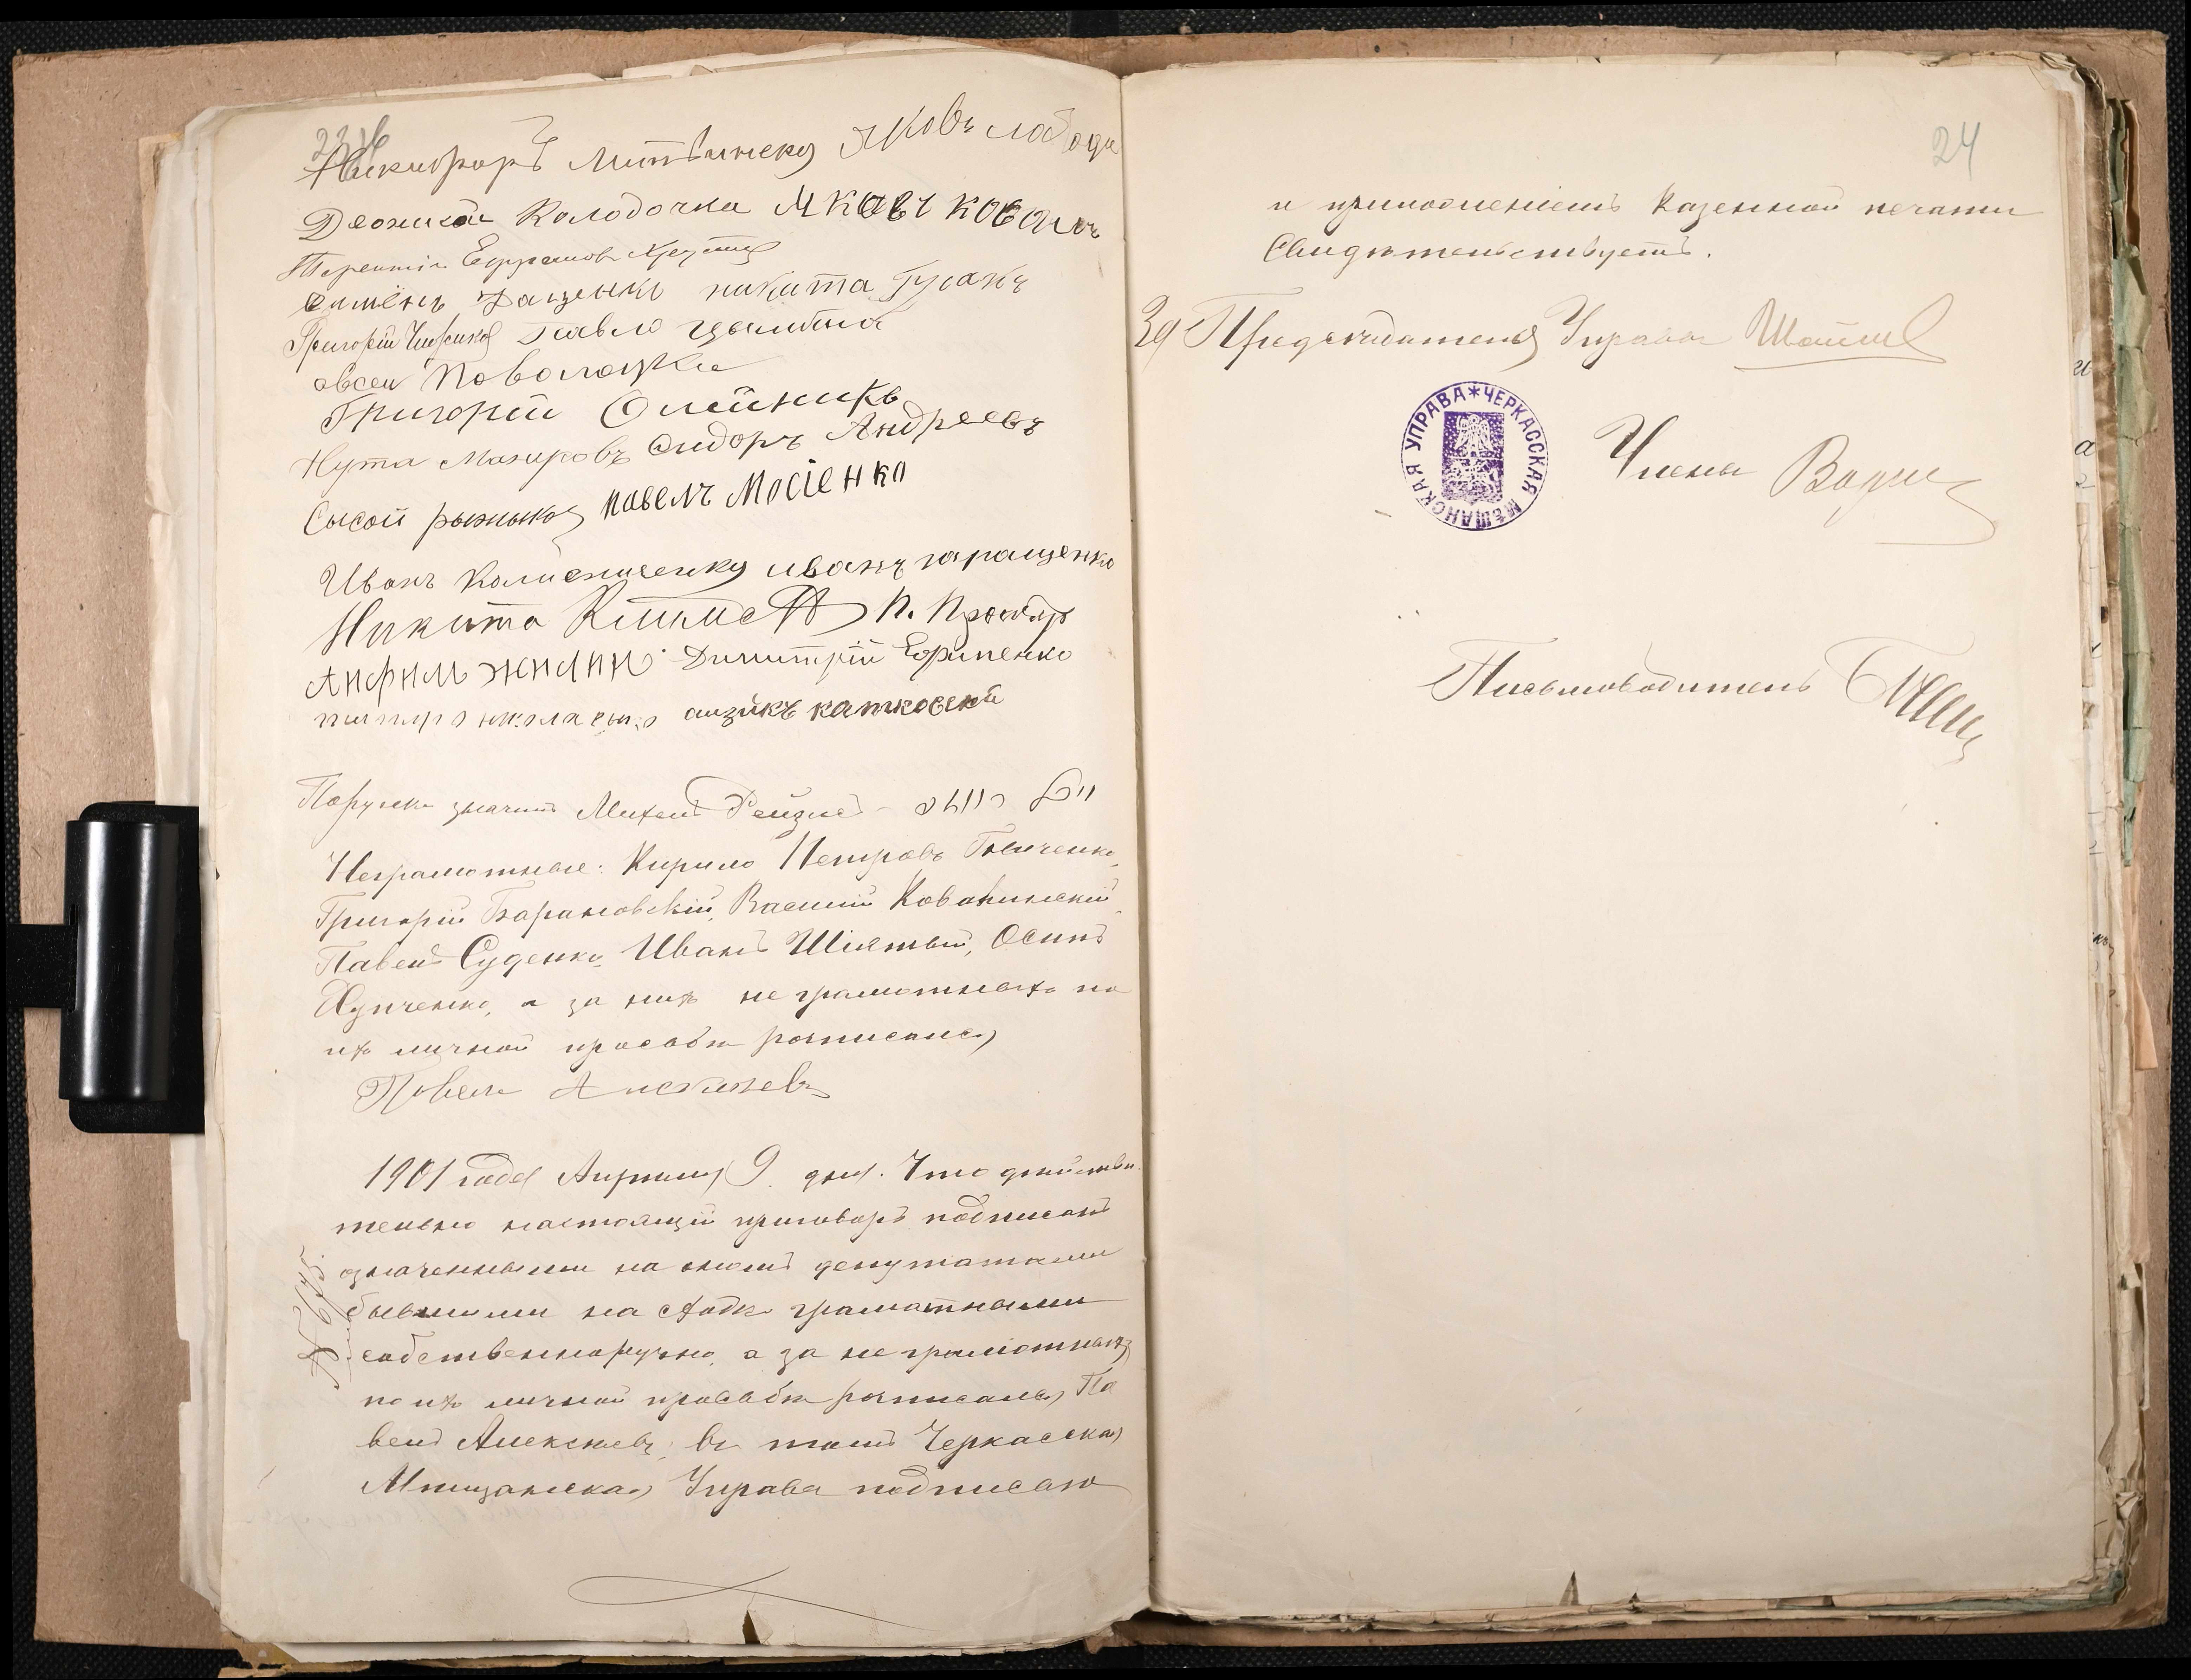 Никифоръ Литвиненко Яковъ лобода
Деонисій Колодочка Яковъ коваль
Терентій Ефремовъ
Семёнъ Даценко никита Гусакъ
Григорій Павло
овсей Поволоцки
Григорій Олейникъ
Нута Мазуровъ Сидоръ Андреевъ
Сысой рыжыков Павелъ Мосіенко
Иванъ Колисниченко иванъ гаращенко
Никита П.
Анфилъ жилин Димитрій Ефименко
айзикъ катковскй
значитъ Михель Рейзис
Неграмотные: Кирило Петровъ
Григорій Барановскій, Василій
Павелъ Суденко, Иванъ Шіятый, Осипъ
а за нихъ не грамотныхъ по
ихъ личной просьбѣ росписался
Павелъ Алексѣевъ
1901 года Апрѣля 9 дня. Что дѣйстви
тельно настоящій приговоръ подписанъ
означенными на ономъ депутатами
бывшими на сходѣ грамотными
собственноручно, а за не грамотныхъ
по ихъ личной просьбѣ росписался Па
велъ Алексѣевъ, въ томъ Черкасская
Мѣщанская Управа подписью
24
и приложеніемъ Казенной печати
Свидѣтельствуетъ.
За Предсѣдателя Управы
УПРАВА * ЧЕРКАССКАЯ МѢЩАНСКАЯ
Члены
Письмоводитель